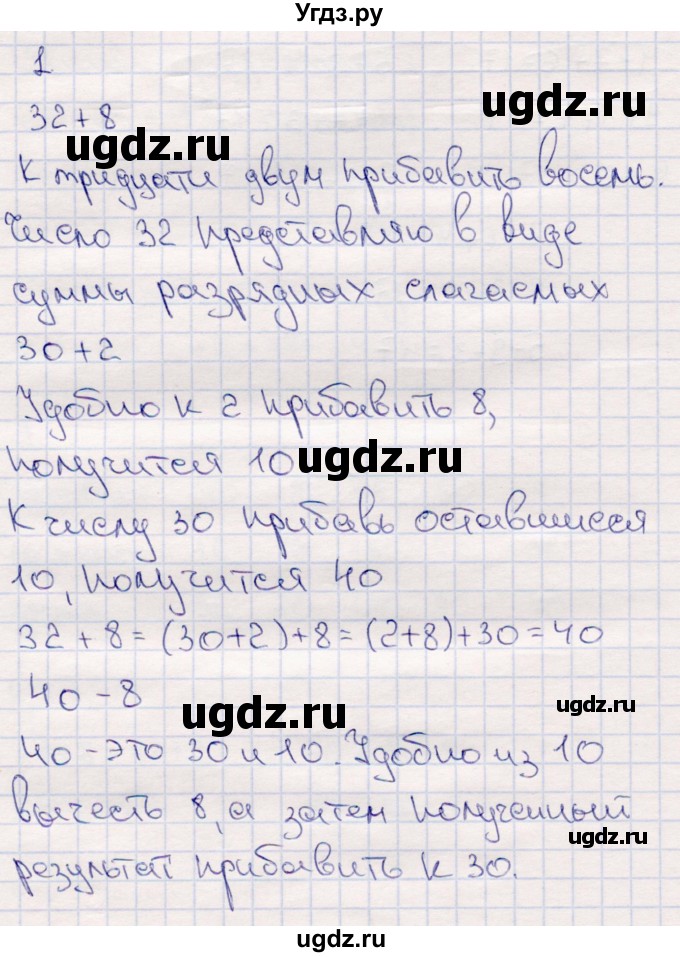 Угдз.ру
1
32+8
ugdz.ru
ugdz.ru
К тридцати двум прибавить восемь.
Число 32 представляю в виде
суммы разрядных слагаемых
30+2
Удобно к 2 прибавить 8,
получится 10
ugdz.ru
К числу 30 прибавь оставшиеся
10, получится 40
32+8=(30+2)+8=(2+8)+30=40
40-8
ugdz.ru
ugdz.ru
40-это 30 и 10. Удобно из 10
вычесть 8, а затем полученный
ugdz.ru
результат прибавить к 30.
ugdz.ru